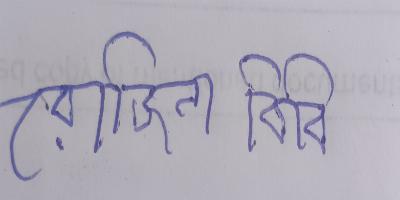 রোজিনা বিবি